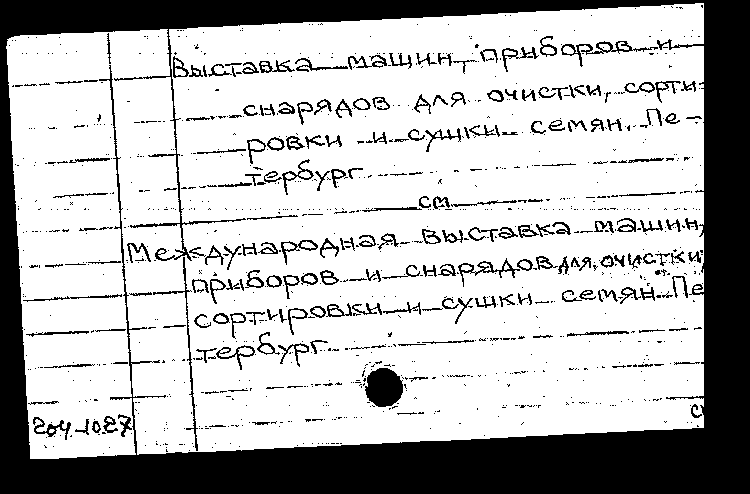 Выставка машин, приборов и
снарядов для очистки, сорти-
ровки и сушки семян. Пе-
тербург
см
Международная выставка машин,
приборов и снарядов для очистки,
сортировки и сушки семян. Пе
тербург
204-1027